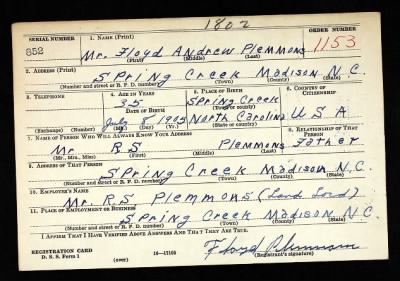 1802
SERIAL NUMBER
1. NAME (Print)
ORDER NUMBER
352
Mr. Floyd Andrew Plemmons
1153
(First) (Middle) (Last)
2. ADDRESS (Print)
Spring Creek Madison N.C.
(Number and street or R. F. D. number) (Town) (County) (State)
3. TELEPHONE
4. AGE IN YEARS
5. PLACE OF BIRTH
6. COUNTRY OF CITIZENSHIP
35
Spring Creek
DATE OF BIRTH
(Town or county)
July 8 1905
North Carolina
U S A
(Exchange) (Number)
(Mo.) (Day) (Yr.)
(State or country)
7. NAME OF PERSON WHO WILL ALWAYS KNOW YOUR ADDRESS
8. RELATIONSHIP OF THAT PERSON
Mr. R S Plemmons Father
(Mr., Mrs., Miss) (First) (Middle) (Last)
9. ADDRESS OF THAT PERSON
Spring Creek Madison N.C.
(Number and street or R. F. D. number) (Town) (County) (State)
10. EMPLOYER'S NAME
Mr. R.S. Plemmons (Land Lord)
11. PLACE OF EMPLOYMENT OR BUSINESS
Spring Creek Madison N.C.
(Number and street or R. F. D. number) (Town) (County) (State)
I AFFIRM THAT I HAVE VERIFIED ABOVE ANSWERS AND THAT THEY ARE TRUE.
Floyd Plemmons
REGISTRATION CARD
D. S. S. Form 1
(over)
16—17105
(Registrant's signature)